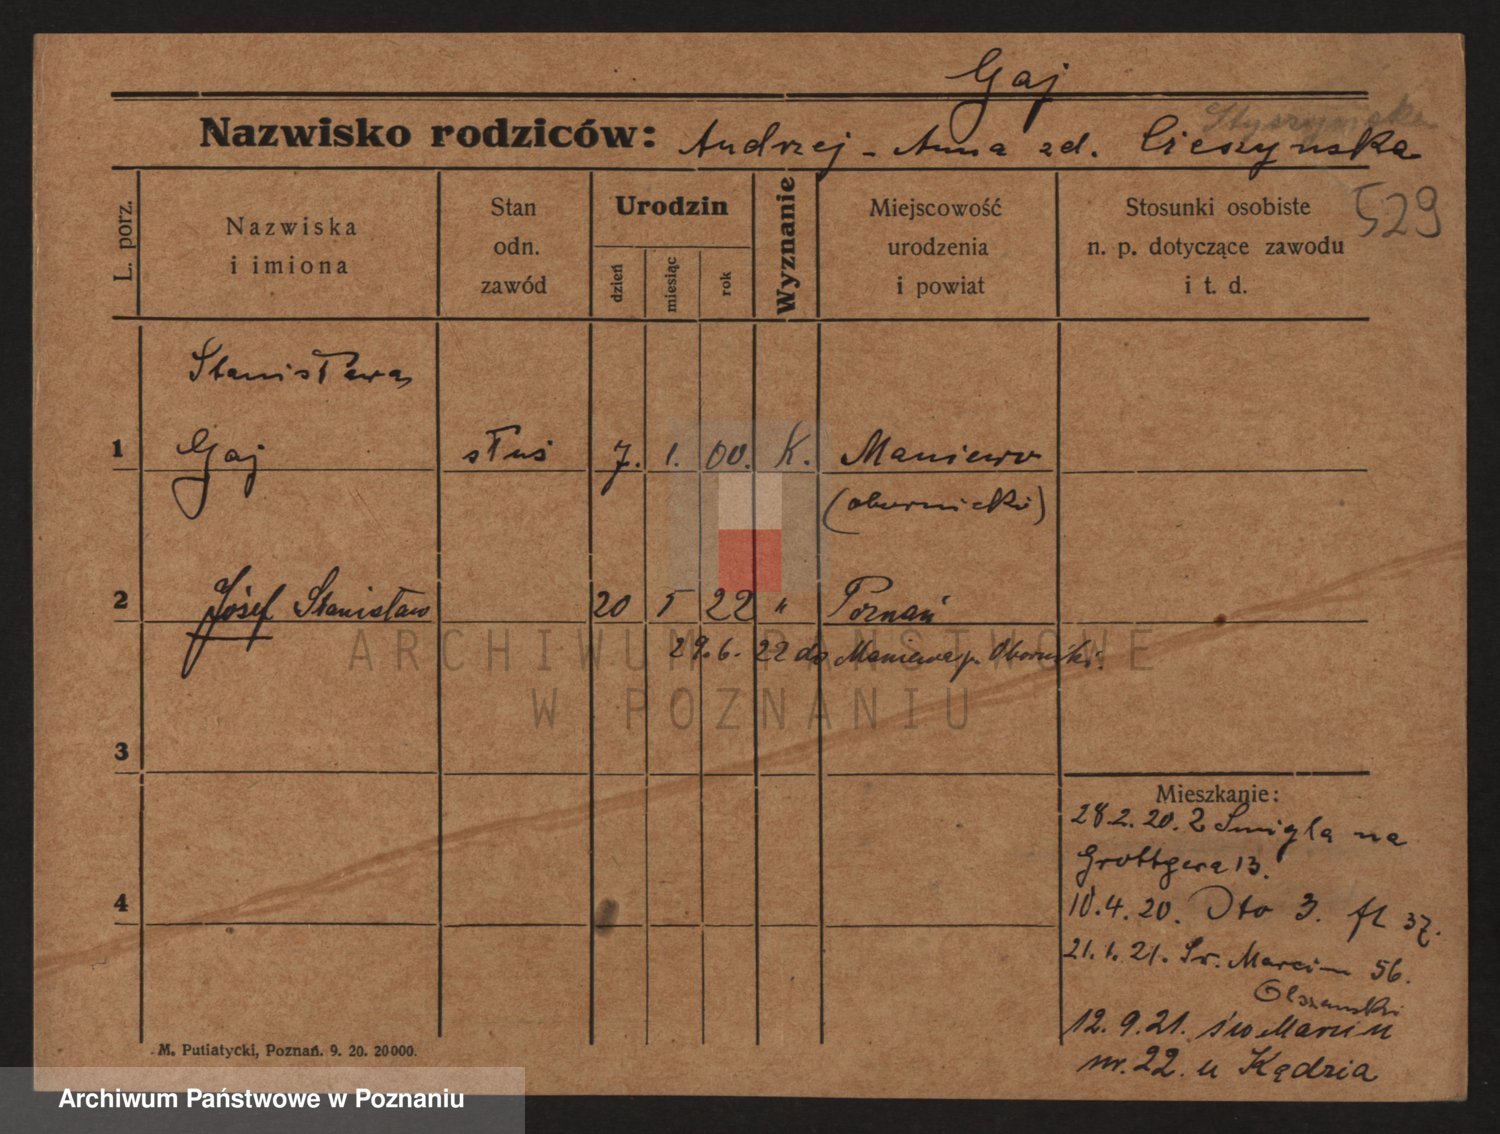 Gaj
Nazwisko rodziców: Andrzej - Anna zd. Cieszyńska
529
L. porz.
Nazwiska
i imiona
Stan
odn.
zawód
Urodzin
dzień
miesiąc
rok
Wyznanie
Miejscowość
urodzenia
i powiat
Stosunki osobiste
n. p. dotyczące zawodu
i t. d.
Stanisława
1 Gaj służ 7. 1. 00. K. Maniewo
(obornicki)
2 Józef Stanisław 20 5 22 " Poznań
29.6.22 do Maniewa p. Oborniki.
ARCHIWUM PAŃSTWOWE
W POZNANIU
3
Mieszkanie:
28.2.20. z Śmigla na
Grottgera 13.
4
10.4.20. Dto 3. 37.
21.1.21. Św. Marcin 56.
Olszewski
12.9.21. św Marcin
nr. 22. u Kędzia
M. Putiatycki, Poznań. 9. 20. 20000.
Archiwum Państwowe w Poznaniu